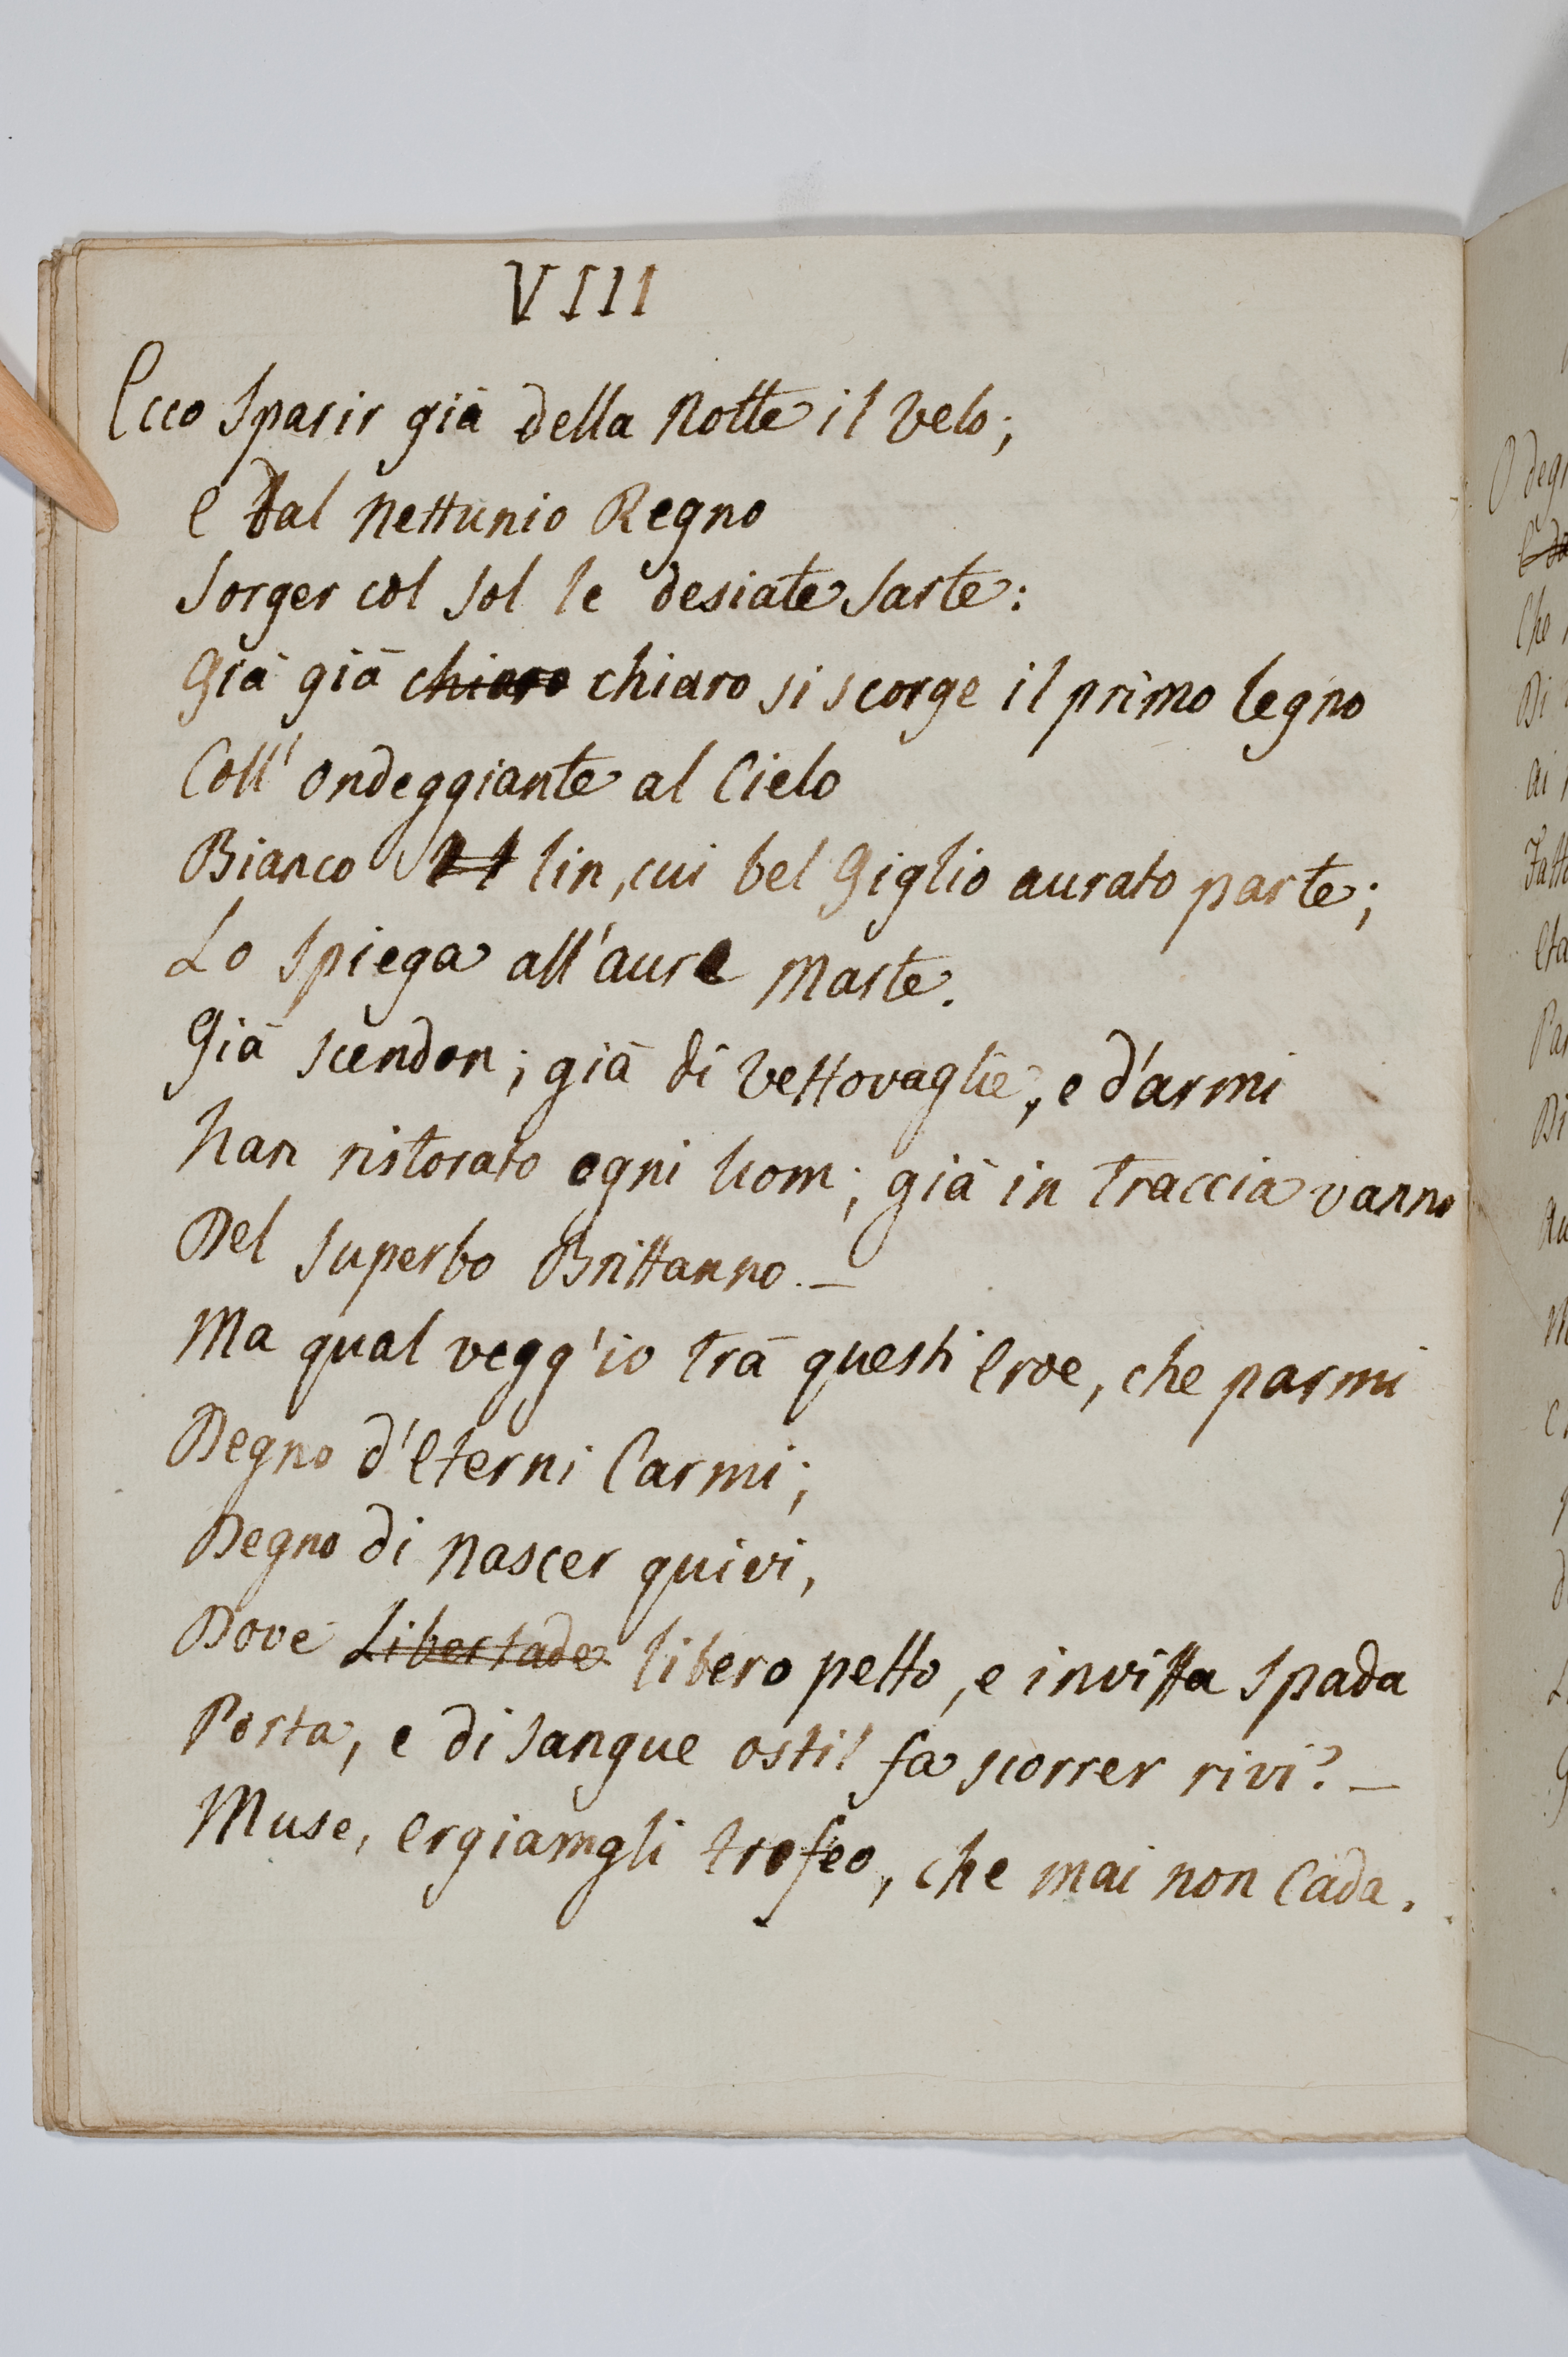 VIII
Ecco sparir già della Notte il velo;
E dal Nettunio Regno
Sorger col Sol le desiate sarte:
Già già chiaro chiaro si scorge il primo legno
Coll' ondeggiante al Cielo
Bianco lin, cui bel Giglio aurato parte;
Lo spiega all'aure Marte.
Già scendon; già di vettovaglie, e d'armi
Han ristorato ogni Uom; già in traccia vanno
Del superbo Brittanno. —
Ma qual vegg'io trà questi Eroe, che parmi
Degno d'Eterni Carmi;
Degno di nascer quivi,
Dove Libertade libero petto, e invitta spada
Porta, e di sangue ostil fa scorrer rivi? —
Muse, ergiamgli trofeo, che mai non Cada.